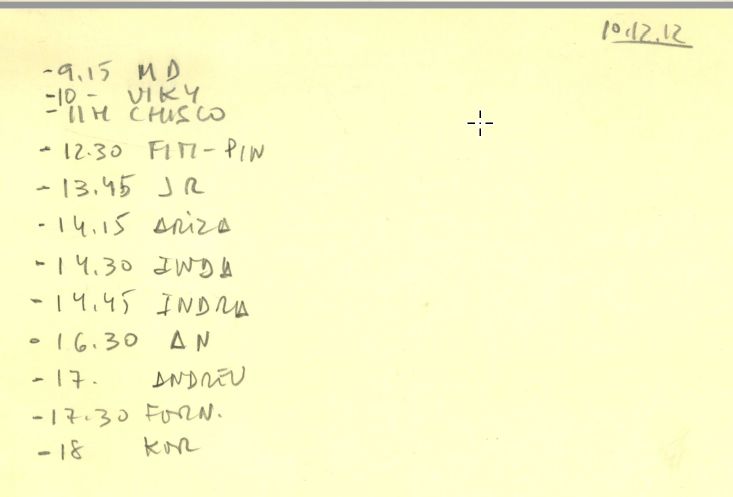 10.12.12
-9.15 MD
-10 - VIKY
-11H CHISCO
-12.30 FITI-PIN
-13.45 JR
-14.15 ARIZA
-14.30 INDA
-14.45 INDRA
-16.30 AN
-17. ANDREU
-17.30 FORN.
-18 KOR